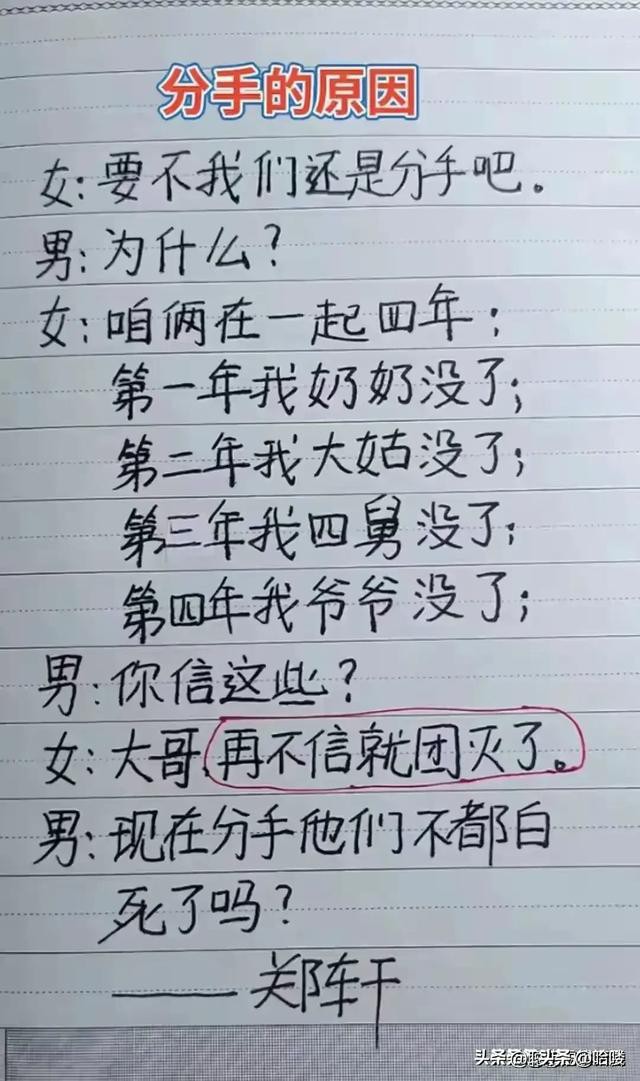 分手的原因
女:要不我们还是分手吧。
男:为什么?
女:咱俩在一起四年;
第一年我奶奶没了;
第二年我大姑没了;
第三年我四舅没了;
第四年我爷爷没了;
男:你信这些?
女:大哥,再不信就团灭了。
男:现在分手他们不都白
死了吗?
——郑阵干